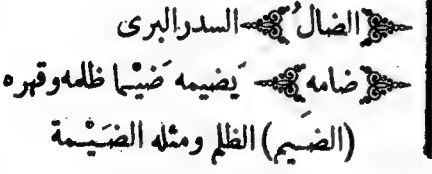 الضالُ السدر البرى
ضامه يَضيمه ضَيْما ظلمه وقهره
(الضَيم) الظلم ومثله الضَيْمة